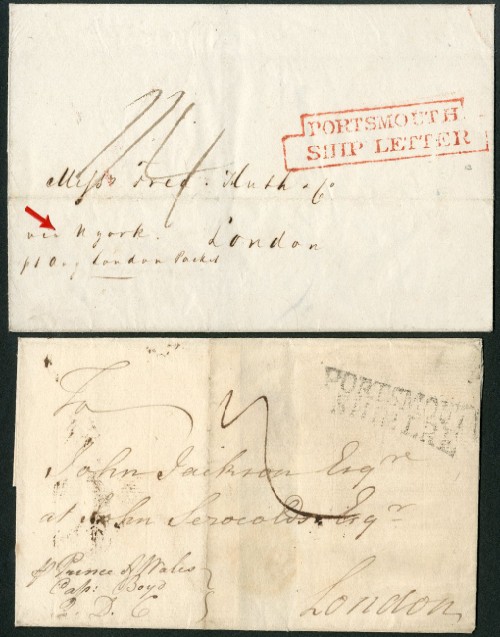 PORTSMOUTH
SHIP LETTER
Messrs Fred. Huth & Co
via N york. London
London Packet
PORTSMOUTH
SHIP LRE
To
John Jackson Esqre
at John Serocolds Esqr
p Prince of Wales
Cap: Boyd
London